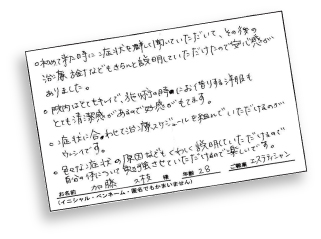 ○初めて来た時に症状を詳しく聞いていただいて、その後の
治療、おはなしなどもきちんと説明していただけたので安心感が
ありました。
○院内はとてもキレイで、施術の時にお借りする洋服も
とても清潔感があるので好感がもてます。
○症状に合わせて治療スケジュールを組んでいただけるのが
ウレシイです。
○色々な症状の原因などもくわしく説明していただけるので
自分の体について勉強させていただけるので楽しいです。
お名前 加藤 枝 様 年齢 28 ご職業 エステティシャン
(イニシャル・ペンネーム・匿名でもかまいません)